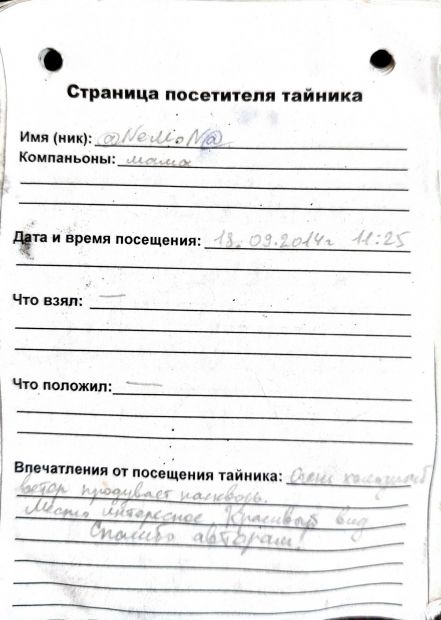 Страница посетителя тайника
Имя (ник): @NeMoN@
Компаньоны: мама
Дата и время посещения: 18.09.2014г 11:25
Что взял: —
Что положил: —
Впечатления от посещения тайника: Очень холодный
ветер продувает насквозь.
Место интересное Красивый вид
Спасибо авторам.